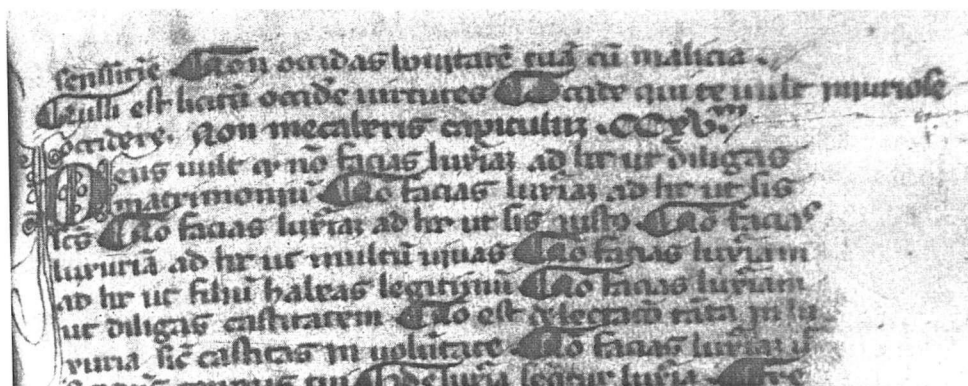 sensitīe Non occidas bonitatē tuā cū malicia.
Nulli est licitū occidē uirtutes Occide qui te uult iniuriose
occidere. Non mecaberis capitulum .CCXV.
Deus uult qͥ nō facias luxͥiaꝫ ad hͦ ut diligas
matrimoniū Nō facias luxͥiaꝫ ad hͦ ut sis
Nō facias luxͥiaꝫ ad hͦ ut sis iustꝰ Nō facias
luxuriā ad hͦ ut multū uiuas Nō facias luxͥiam
ad hͦ ut filiū habeas legitimū Nō facias luxͥiam
ut diligas castitatem Nō est delectacͦ tāta in lu
xuria sic̄ castitas in uolūtate Nō facias luxͥiaꝫ
luxͥia